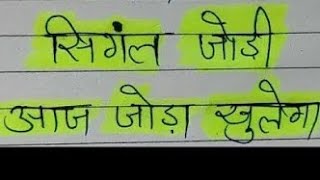 सिगंल जोड़ी
आज जोड़ा खुलेगा